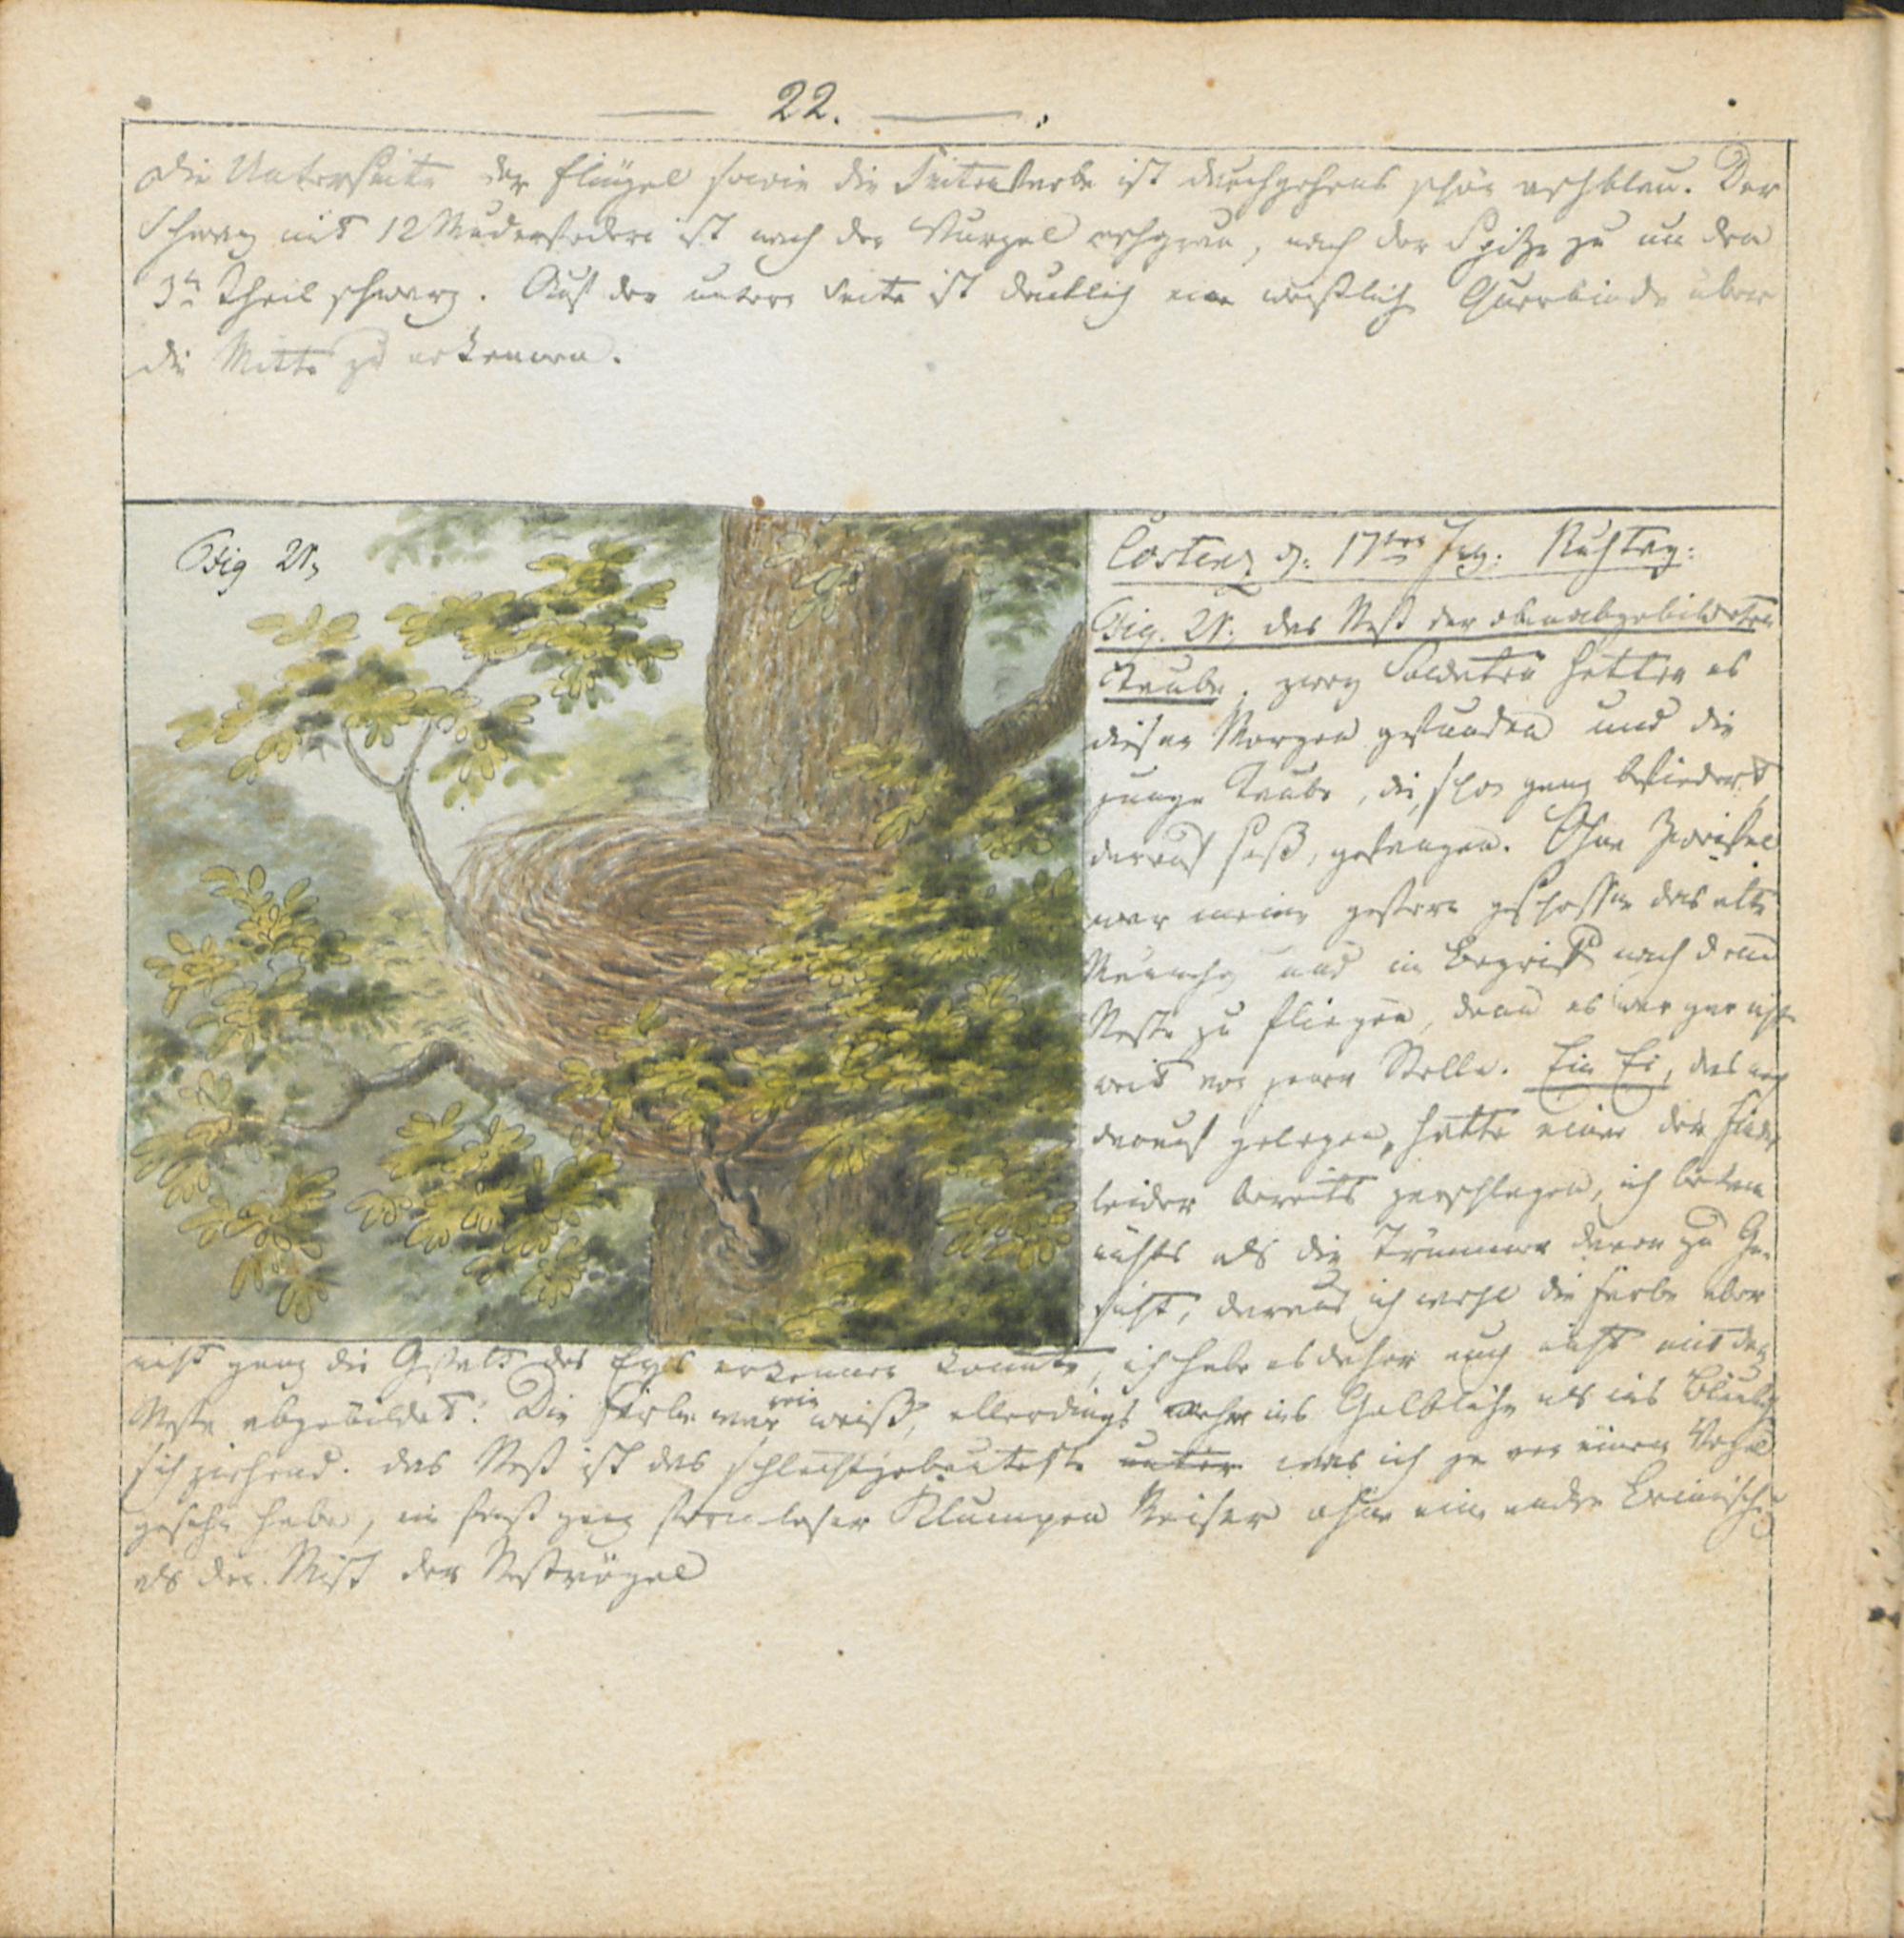 22.
Die Unterseite der Flügel sowie die Seitenfarbe ist durchgehens schön aschblau. Der
Schwanz mit 12 Ruderfedern ist nach der Wurzel aschgrau, nach der Spitze zu um den
3n Theil schwarz. Auf der untern Seite ist deutlich eine weißliche Querbinde über
die Mitte zu erkennen.
Fig 21,
d: 17ten Ruhtag:
Fig. 21. das Nest der obenabgebildeten
Taube. zwey Soldaten hatten es
diesen Morgen gefunden und die
junge Taube, die schon ganz befiedert,
darauf saß, gefangen. Ohne Zweifel
war meine gestern geschossne das alte
Männche und im Begriff nach dem
Neste zu fliegen, denn es war gar nicht
weit von jener Stelle. Ein Ei, das noch
darauf gelegen, hatte einer der
leider bereits zerschlagen, ich bekam
nichts als die Trümmer davon zu Ge-
sicht, daraus ich wohl die Farbe aber
nicht ganz die Gestalt des Eys erkennen konnte, ich habe es daher auch nicht mit dem
Neste abgebildet. Die Farbe war rein weiß, allerdings mehr ins Gelbliche als ins Bläuliche
sich ziehend. das Nest ist das schlechtgebauteste unter was ich je von einem Vogel
gesehn habe, ein fast ganz formloser Klumpen Reiser ohne eine andre Beimischung
als den Mist der Nestvögel